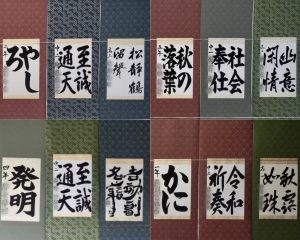 やしろ
至誠通天
松静鶴
留聲
秋の落葉
社会奉仕
幽意閑情
発明
至誠通天
かに
令和祈奏
秋露如珠